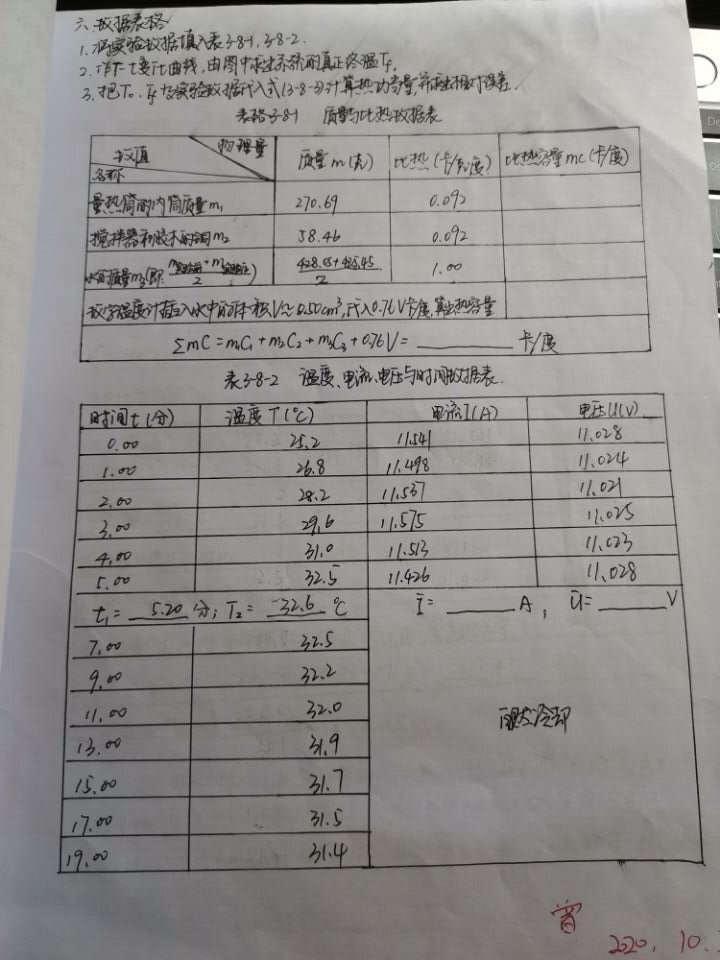 六.数据表格
1.将实验数据填入表3-8-1,3-8-2.
2.作T-t变化曲线,由图中求出系统的真正终温Tf.
3.把T0、Tf与实验数据代入式(3-8-3)计算热功当量,并求出相对误差.
表格3-8-1 质量与比热数据表
数值 物理量 名称 质量m(克) 比热(卡/克度) 比热容量mc(卡/度)
量热筒的内筒质量m1 270.69 0.092
搅拌器和胶木的铜m2 58.46 0.092
水的质量m3(即 2) 2 1.00
数字温度计插入水中的体积V≈0.50cm³,代入0.76V卡/度,算出热容量
ΣmC=m1C1+m2C2+m3C3+0.76V= 卡/度
表3-8-2 温度、电流、电压与时间数据表.
时间t(分) 温度T(℃) 电流I(A) 电压U(V)
0.00 25.2 11.541 11.028
1.00 26.8 11.498 11.024
2.00 28.2 11.537 11.021
3.00 29.6 11.575 11.025
4.00 31.0 11.513 11.023
5.00 32.5 11.426 11.028
t1= 5.20 分; T2= 32.6 ℃ Ī= A, Ū= V
7.00 32.5
9.00 32.2
11.00 32.0
自然冷却
13.00 31.9
15.00 31.7
17.00 31.5
19.00 31.4
2020.10.